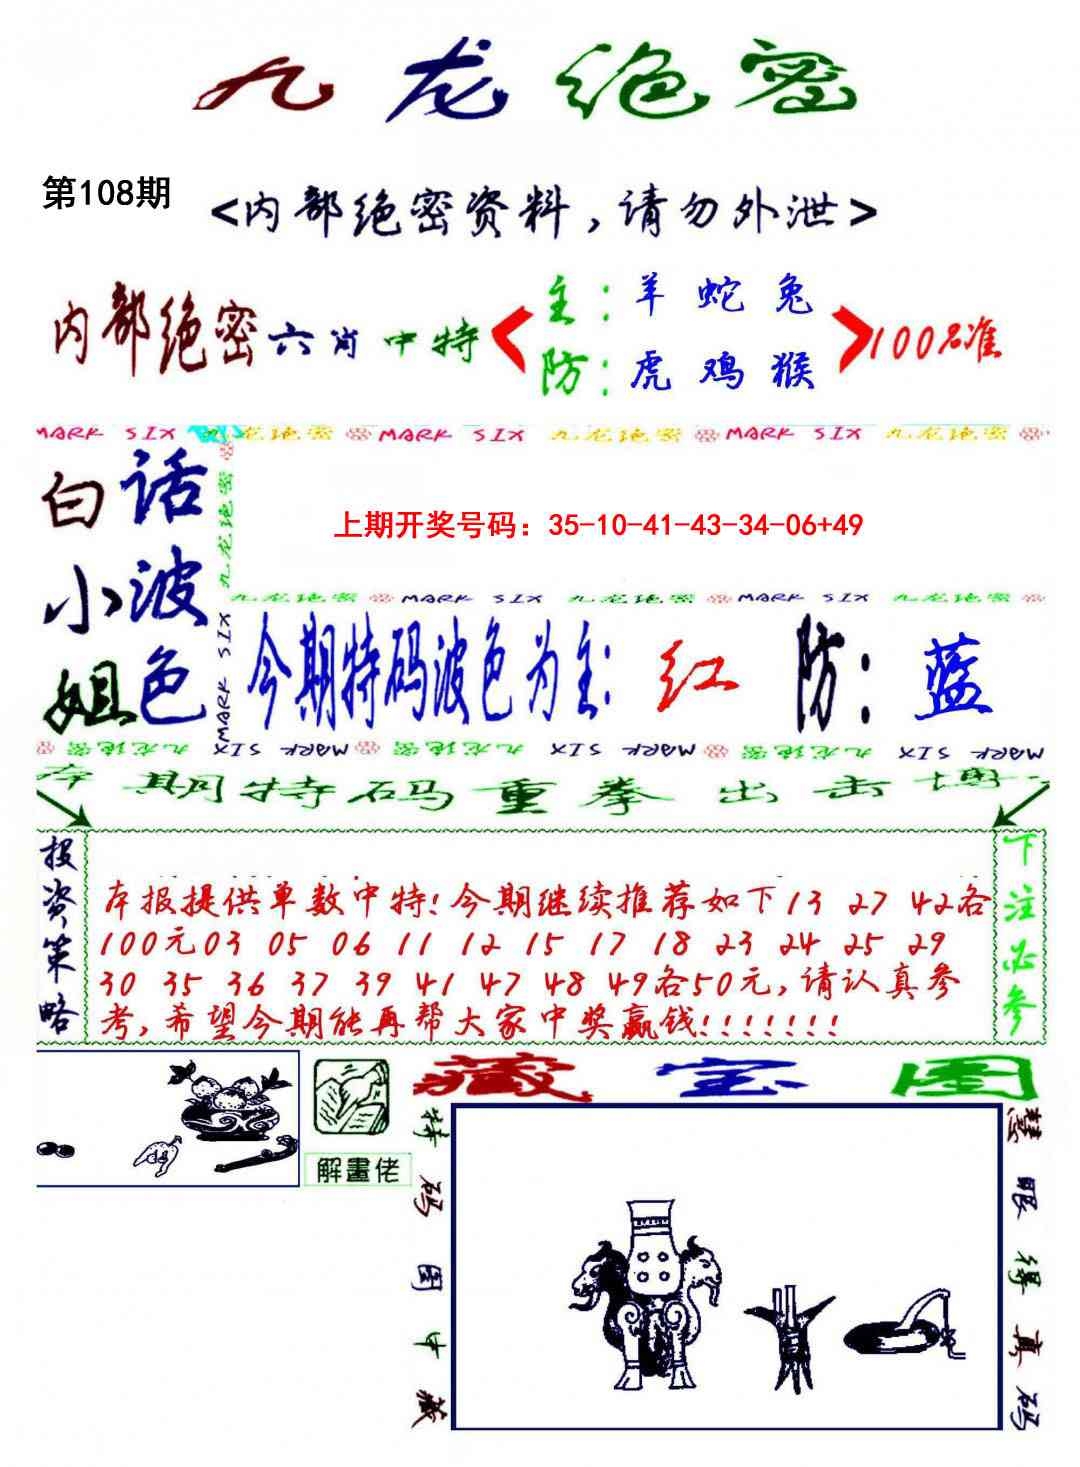 九龙绝密
第108期
<内部绝密资料,请勿外泄>
内部绝密六肖中特
主:羊 蛇 兔
防:虎 鸡 猴
100%准
MARK SIX 九龙绝密 MARK SIX 九龙绝密 MARK SIX 九龙绝密
白话
小波
姐色
九龙绝密
MARK SIX
上期开奖号码：35-10-41-43-34-06+49
九龙绝密 MARK SIX 九龙绝密 MARK SIX 九龙绝密
今期特码波色为主:红 防:蓝
九龙绝密 MARK SIX 九龙绝密 MARK SIX 九龙绝密 MARK SIX
本期特码重拳出击博
投资策略
本报提供单数中特!今期继续推荐如下13 27 42各
100元03 05 06 11 12 15 17 18 23 24 25 29
30 35 36 37 39 41 47 48 49各50元,请认真参
考,希望今期能再帮大家中奖赢钱!!!!!!!
下注必参
解畫佬
藏宝图
特码图中藏
慧眼得真码